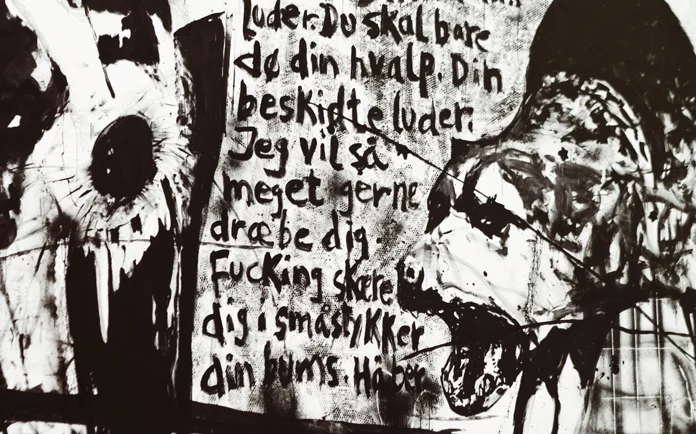 luder. Du skal bare
dø din hvalp. Din
beskidte luder.
Jeg vil så
meget gerne
dræbe dig.
Fucking skære
dig i småstykker
din bums. Håber